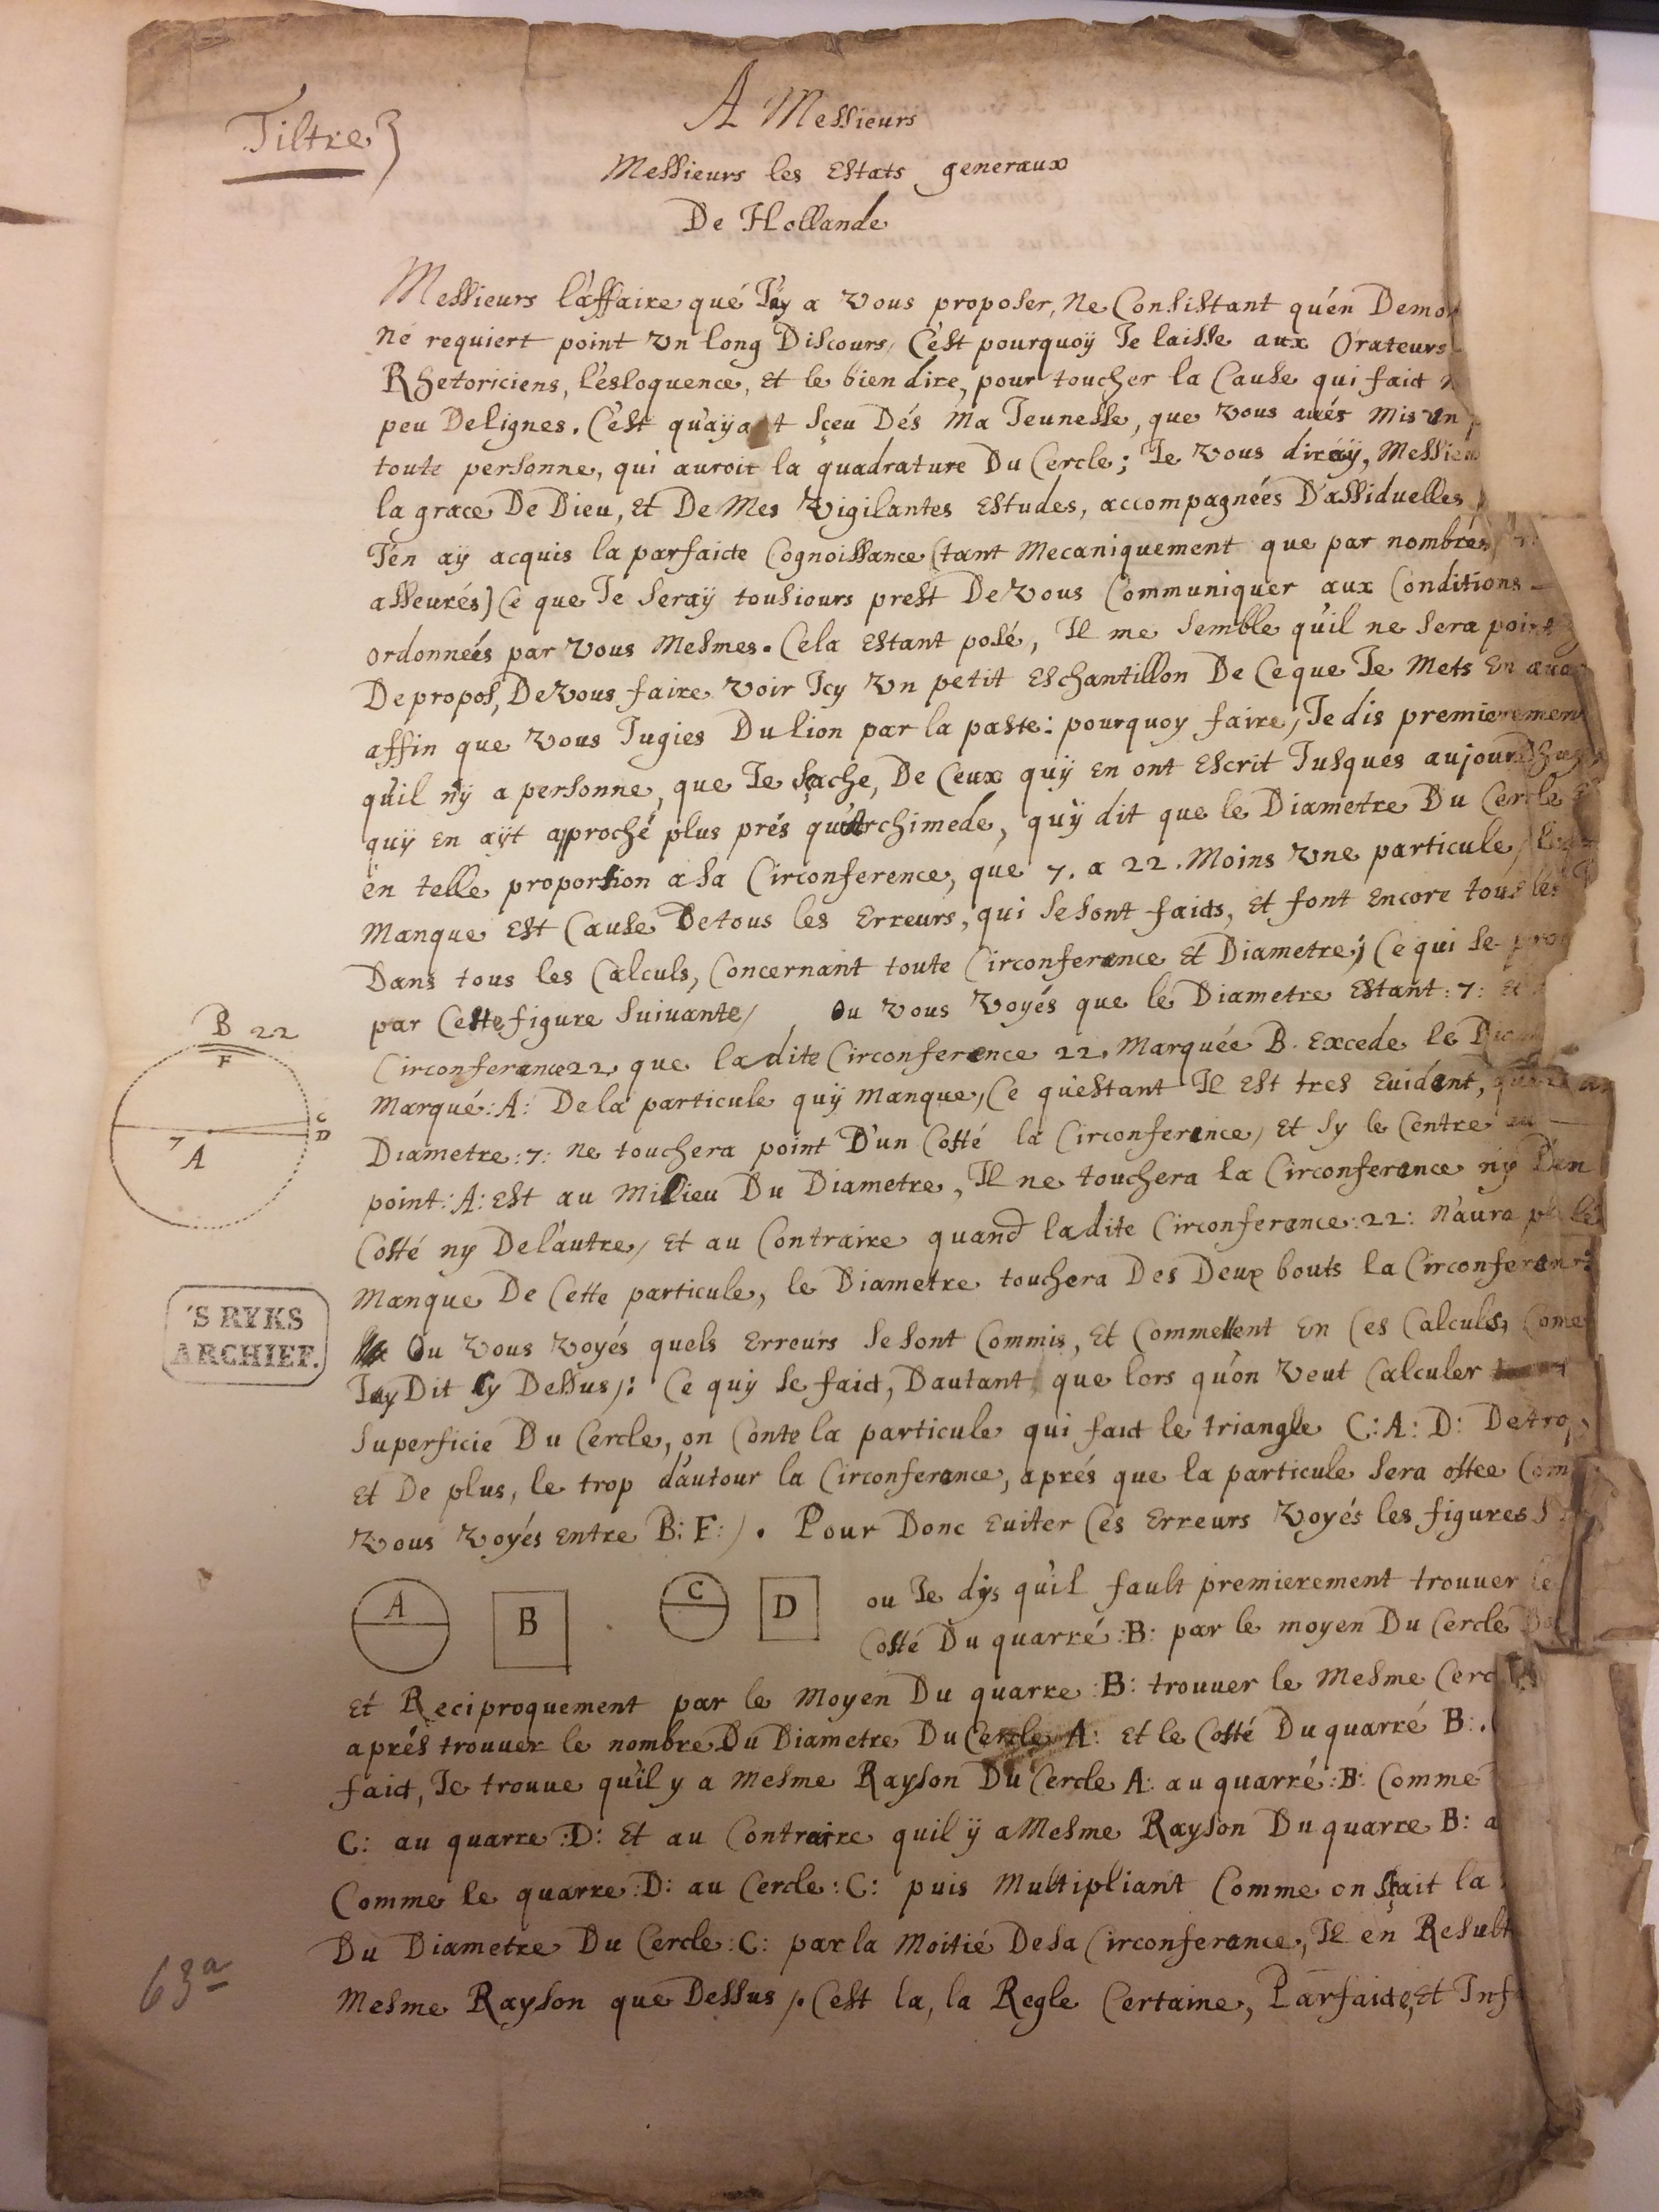 Tiltre
A Messieurs
Messieurs les Estats generaux
De Hollande
Messieurs l'affaire que J'ay a vous proposer, Ne Consistant qu'en
ne requiert point vn long Discours, C'est pourquoÿ Je laisse aux Orateurs
Rhetoriciens, l'esloquence, et le bien dire, pour toucher la Cause qui faict
peu De lignes. C'est qu'aÿant sçeu Dés Ma Jeunesse, que vous aués Mis un
toute personne, qui auroit la quadrature Du Cercle; Je vous diraÿ,
la grace De Dieu, et De Mes Vigilantes Estudes, accompagnées D'assiduelles
J'en aÿ acquis la parfaicte Cognoissance (tant Mecaniquement que par nombrés
asseurés) Ce que Je seraÿ tousiours prest De vous Communiquer aux Conditions
ordonneés par vous Mesmes. Cela estant posé, Il me semble qu'il ne sera point
De propos, De vous faire voir Icy vn petit Eschantillon De Ce que Je Mets En
affin que vous Jugies Du Lion par la paste: pourquoy faire, Je dis premierement
qu'il n'ÿ a personne, que Je sçache, De Ceux quÿ en ont escrit Jusques
quÿ en aÿt approché plus prés qu'Archimede, quÿ dit que le Diametre Du Cercle
en telle proportion a sa Circonference, que 7. a 22. Moins vne particule,
Manque est Cause De tous les Erreurs, qui se sont faicts, et font encore tous les
Dans tous les Calculs, Concernant toute Circonferance et Diametre; Ce qui se
par Cette figure suiuante, Ou vous voyés que le Diametre Estant :7: et
Circonferance 22, que ladite Circonferance 22. Marquée B. Excede le
Marqué :A: De la particule quÿ Manque, Ce qu'estant Il est tres Euidant,
Diametre :7: ne touchera point D'un Costé la Circonferance, et sy le Centre au
point :A: est au Milieu Du Diametre, Il ne touchera la Circonferance ny D'un
Costé ny De l'autre, et au Contraire quand ladite Circonferance :22: n'aura
Manque De Cette particule, le Diametre touchera Des Deux bouts la
Ou vous voyés quels Erreurs se sont Commis, et Commettent en Ces Calculs,
J'ay Dit Cy Dessus: Ce quÿ se faict, Dautant que lors qu'on veut Calculer
superficie Du Cercle, on Conte la particule qui faict le triangle C: A: D: De trop,
et De plus, le trop d'autour la Circonferance, aprés que la particule sera ostee
vous voyés entre B: F: . Pour Donc Euiter Ces Erreurs voyés les figures
ou Je dÿs qu'il fault premierement trouuer le
Costé Du quarré :B: par le moyen Du Cercle
et Reciproquement par le Moyen Du quarre :B: trouuer le Mesme
aprés trouuer le nombre Du Diametre Du Cercle A: et le Costé Du quarré B:.
faict, Je trouue qu'il y a Mesme Rayson Du Cercle A: au quarré :B: Comme
C: au quarre :D: et au Contraire quil ÿ a Mesme Rayson Du quarre B: a
Comme le quarre :D: au Cercle :C: puis Multipliant Comme on sçait la
Du Diametre Du Cercle :C: par la Moitié De sa Circonferance, Il en
Mesme Rayson que Dessus. C'est la, la Regle Certaine, Parfaicte, et
B 22
F
C
D
7
A
'S RYKS
ARCHIEF.
A
B
C
D
63a